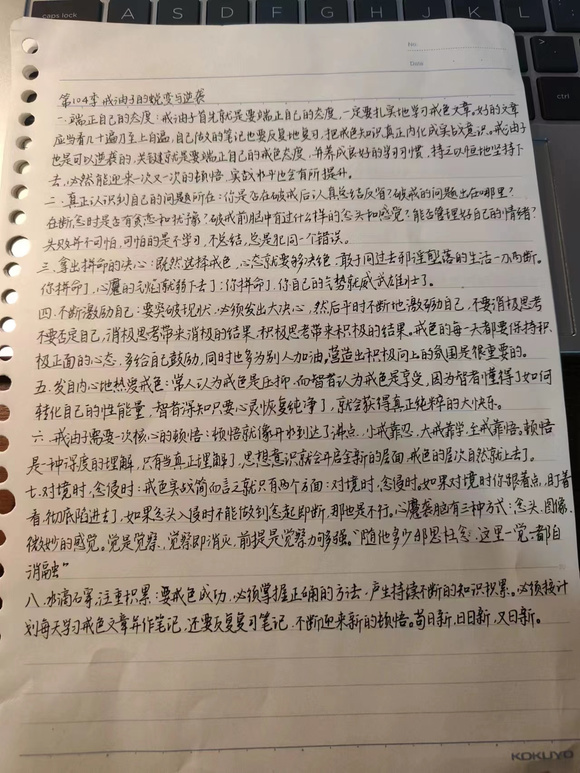 caps lock
A
S
D
F
G
H
J
K
L
ctrl
No.
Date
第104季 戒油子的蜕变与逆袭
一.端正自己的态度:戒油子首先就是要端正自己的态度,一定要扎实地学习戒色文章。好的文章
应当看几十遍乃至上百遍,自己做的笔记也要反复地复习,把戒色知识真正内化成实战意识。戒油子
也是可以逆袭的,关键就是要端正自己的戒色态度,并养成良好的学习习惯,持之以恒地坚持下
去,必然能迎来一次又一次的顿悟,实战水平也会有所提升。
二.真正认识到自己的问题所在:你是否在破戒后认真总结反省?破戒的问题出在哪里?
在断念时是否有贪恋和犹豫?破戒前脑中有过什么样的念头和感觉?能否管理好自己的情绪?
失败并不可怕,可怕的是不学习,不总结,总是犯同一个错误。
三.拿出拼命的决心:既然选择戒色,心态就要够决绝,敢于同过去邪淫堕落的生活一刀两断。
你拼命了,心魔的气焰就弱下去了;你拼命了,你自己的气势就威武雄壮了。
四.不断激励自己:要突破现状,必须发出大决心,然后平时不断地激励自己,不要消极思考
不要否定自己,消极思考带来消极的结果,积极思考带来积极的结果。戒色的每一天都要保持积
极正面的心态,多给自己鼓励,同时也多为别人加油,营造出积极向上的氛围是很重要的。
五.发自内心地热爱戒色:常人认为戒色是压抑,而智者认为戒色是享受,因为智者懂得了如何
转化自己的性能量,智者深知只要心灵恢复纯净了,就会获得真正纯粹的大快乐。
六.戒油子需要一次核心的顿悟:顿悟就像开水到达了沸点,小戒靠忍,大戒靠学,至戒靠悟。顿悟
是一种深度的理解,只有当真正理解了,思想意识就会开启全新的层面,戒色的层次自然就上去了。
七.对境时,念侵时:戒色实战简而言之就只有两个方面:对境时,念侵时。如果对境时你跟着点,盯着
看,彻底陷进去了,如果念头入侵时不能做到念起即断,那也是不行。心魔袭脑有三种方式:念头,图像,
微妙的感觉。觉是觉察,觉察即消灭,前提是觉察力够强。“随他多少邪思枉念,这里一觉,都自
消融”
八.水滴石穿,注重积累:要戒色成功,必须掌握正确的方法,产生持续不断的知识积累。必须按计
划每天学习戒色文章并作笔记,还要反复复习笔记,不断迎来新的顿悟。苟日新,日日新,又日新。
KOKUYO